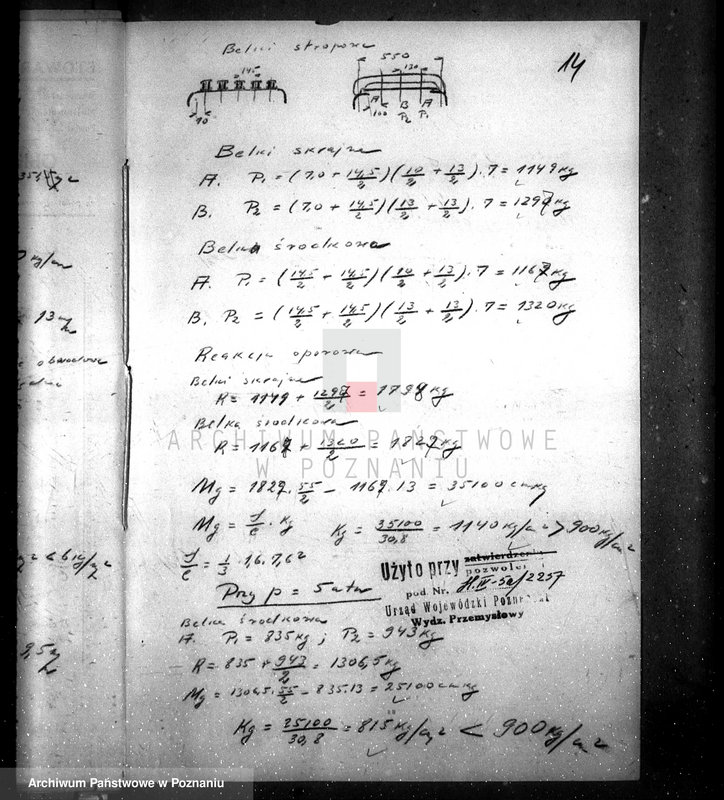 Belki stropowe
14
145
10
550
130
A B A
100 P2 P1
Belki skrajne
A. P1 = (7,0 + 14,5/2)(10/2 + 13/2). 7 = 1149 kg
B. P2 = (7,0 + 14,5/2)(13/2 + 13/2). 7 = 1297 kg
Belka środkowa
A. P1 = (14,5/2 + 14,5/2)(10/2 + 13/2). 7 = 1167 kg
B. P2 = (14,5/2 + 14,5/2)(13/2 + 13/2). 7 = 1320 kg
Reakcja oporowa
Belki skrajne
R = 1149 + 1297/2 = 1798 kg
Belka środkowa
R = 1167 + 1320/2 = 1827 kg
Mg = 1827. 55/2 - 1167. 13 = 35100 cmkg
Mg = J/e . kg Kg = 35100/30,8 = 1140 kg/cm² > 900 kg/cm²
J/e = 1/3 . 1,6. 7,6²
Przy p = 5 atm
Użyto przy zatwierdzeniu
pozwoleń
pod. Nr. H.IV-5a/2257
Urząd Wojewódzki Poznański
Wydz. Przemysłowy
Belka środkowa
A. P1 = 835 kg ; P2 = 943 kg
R = 835 + 943/2 = 1306,5 kg
Mg = 1306,5. 55/2 - 835.13 = 25100 cmkg
Kg = 25100/30,8 = 815 kg/cm² < 900 kg/cm²
kg/cm
13
obwodowe
< 6 kg/m
ARCHIWUM PAŃSTWOWE
W POZNANIU
Archiwum Państwowe w Poznaniu